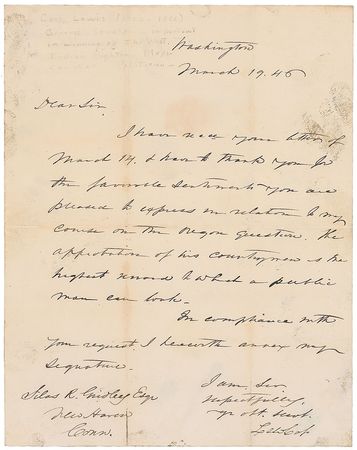 Washington
March 19. 46
Dear Sir,
I have recd your letter of
March 14. & have to thank you for
the favorable sentiments you are
pleased to express in relation to my
course on the Oregon question. The
approbation of his countrymen is the
highest reward to which a public
man can look.
In compliance with
your request I herewith annex my
signature.
I am, Sir,
respectfully,
yr obt. servt.
Lew Cass
Silas R. Gridley Esqr
New Haven
Conn.